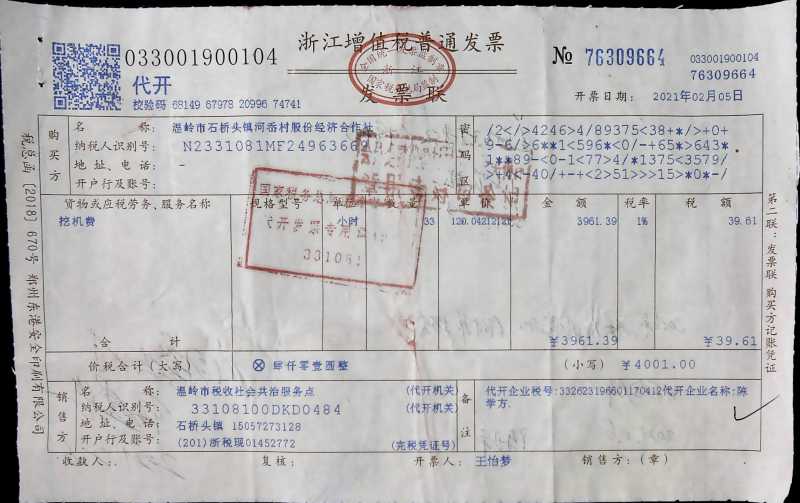 033001900104
浙江增值税普通发票
№ 76309664
033001900104
76309664
代开
发票联
校验码 68149 67978 20996 74741
开票日期: 2021年02月05日
全国统一发票监制章
浙江
国家税务总局监制
购买方
名 称: 温岭市石桥头镇河岙村股份经济合作社
纳税人识别号: N2331081MF2496366
地址、电话: -
开户行及账号:
密码区
/2</>4246>4/89375<38+*/>+0+
9-6/>6**1<596*<0/-+65*>643*
1**89-<0-1<77>4/*1375<3579/
>+4<-40/+-+<2>51>>>15>*0*-/
货物或应税劳务、服务名称 规格型号 单位 数量 单价 金额 税率 税额
挖机费 小时 33 3961.39 1% 39.61
国家税务总局
代开发票专用章
331081
合计 ¥3961.39 ¥39.61
价税合计(大写) ⊗肆仟零壹圆整 (小写) ¥4001.00
销售方
名 称: 温岭市税收社会共治服务点 (代开机关)
纳税人识别号: 33108100DKD0484 (代开机关)
地址、电话: 石桥头镇 15057273128
开户行及账号: (201)浙税现01452772 (完税凭证号)
备注
代开企业税号:332623196601170412代开企业名称:陈
学方.
收款人: 复核: 开票人: 王怡梦 销售方:(章)
税总函〔2018〕670号 郑州东港安全印刷有限公司
第二联:发票联 购买方记账凭证